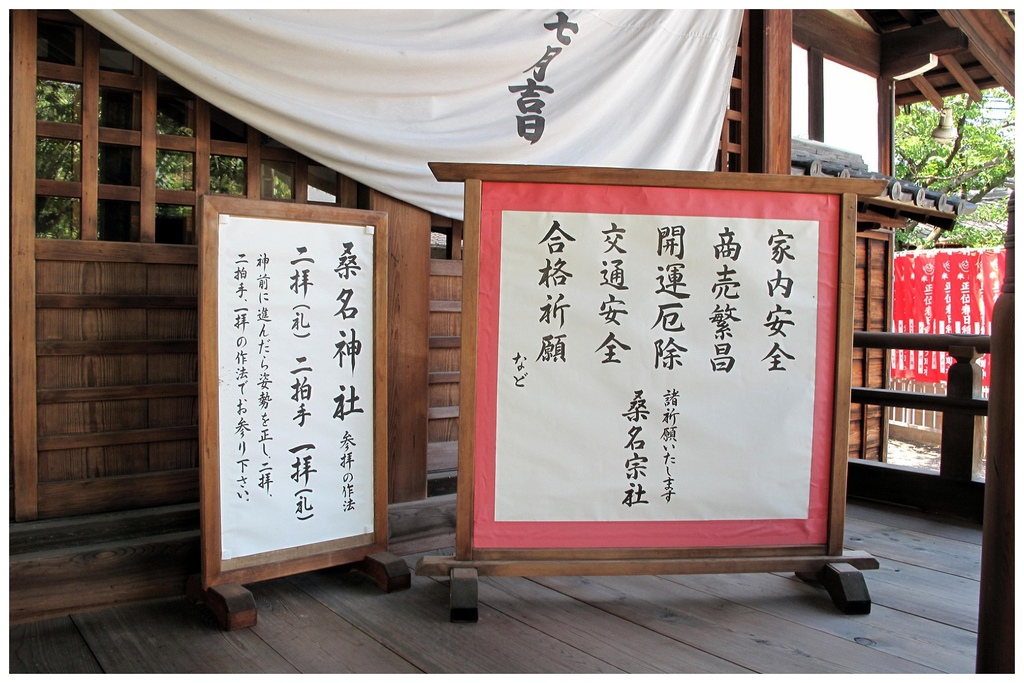 七夕吉日
桑名神社 参拝の作法
二拝(礼) 二拍手 一拝(礼)
神前に進んだら姿勢を正し、二拝、
二拍手、一拝の作法でお参り下さい。
家内安全
商売繁昌
開運厄除
交通安全
合格祈願
など
諸祈願いたします
桑名宗社